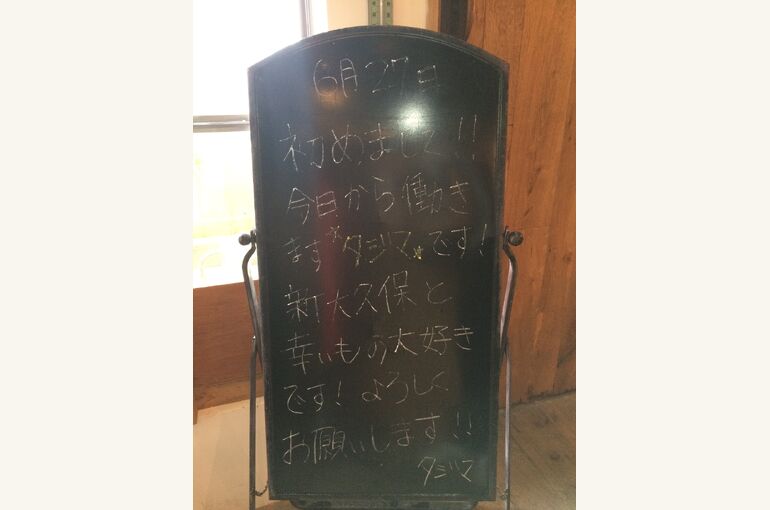 6月27日
初めまして!!
今日から働き
ます"タジマ"です!
新大久保と
幸いもの大好き
です!よろしく
お願いします!!
タジマ